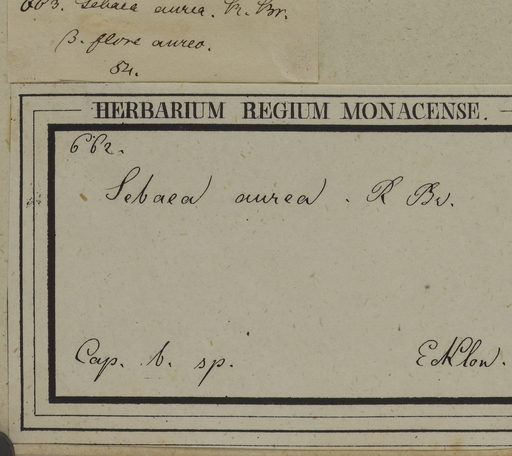 663. Sebaea aurea. R. Br.
β. flore aureo.
84.
HERBARIUM REGIUM MONACENSE.
662.
Sebaea aurea. R Br.
Cap. b. sp. Ecklon.